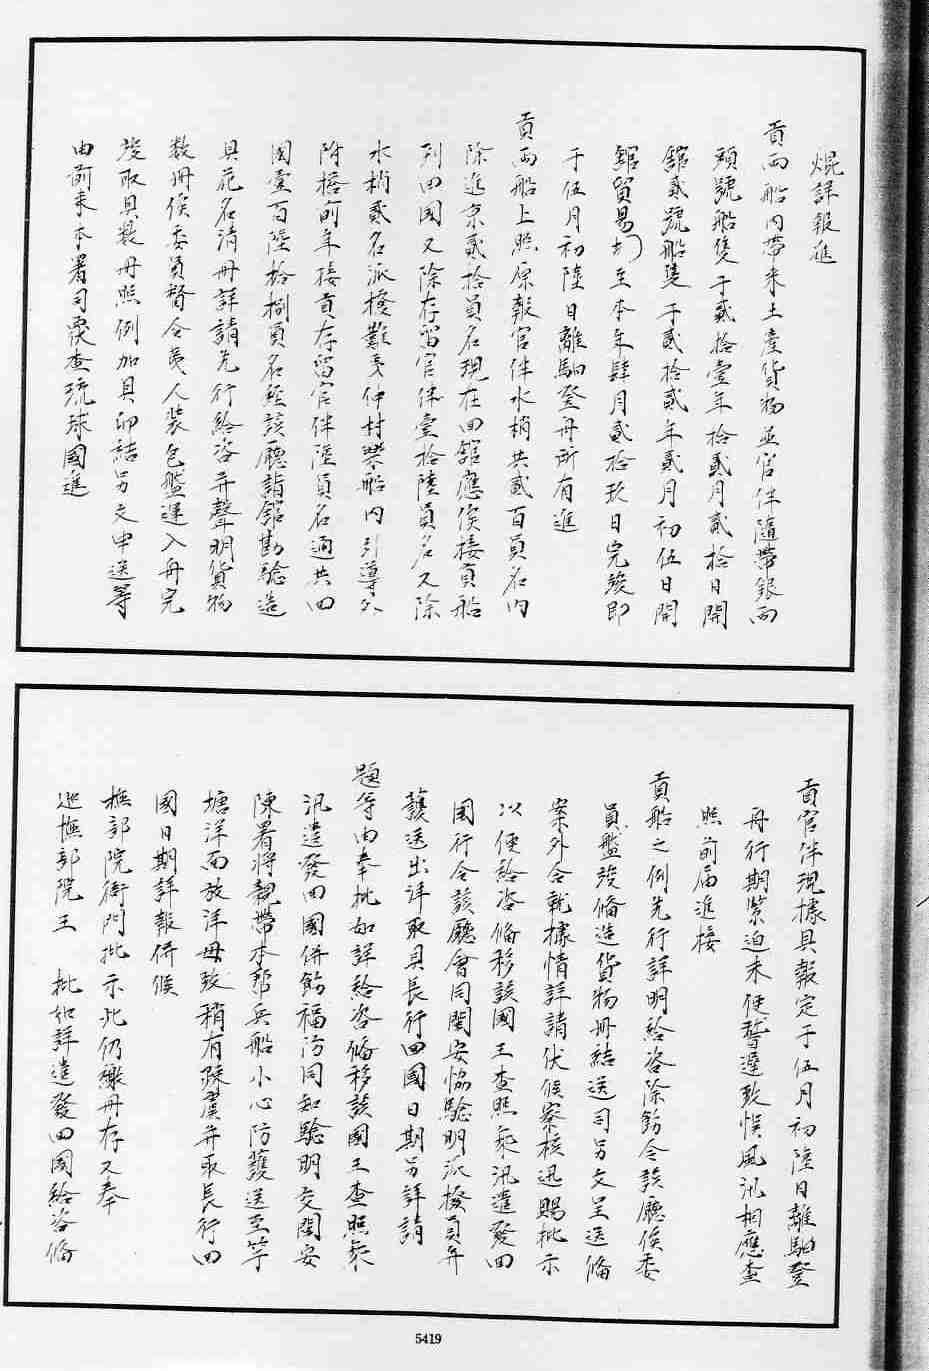 焜詳報進
貢兩船內帶来土產貨物並官伴隨帶銀兩
頭號船隻于貳拾壹年拾貳月貳拾日開
舘貳號船隻于貳拾貳年貳月初伍日開
舘貿易于至本年肆月貳拾玖日完竣即
于伍月初陸日離駒登舟所有進
貢兩船上照原報官伴水梢共貳百員名内
除進京貳拾員名現在田舘應俟接貢船
到田國又除存留官伴壹拾陸員名又除
水梢貳名派撥難夷仲村渠船内引導外
附搭前年接貢存留官伴陸員名通共回
國壹百陸拾捌員名經該廳詣舘勘驗造
具花名清册詳請先行給咨并聲明貨物
数册俟委員督令夷人裝包盤運入舟完
竣取具数册照例加具印結另文申送等
由前来本署司覆查琉球國進
貢官伴現據具報定于伍月初陸日離駒登
舟行期緊迫未便暫遲致悞風汛相應查
照前届進接
貢船之例先行詳明給咨除飭令該廳俟委
員盤竣俻造貨物册結送司另文呈送俻
案外合就據情詳請伏候察核迅賜批示
以便給咨俻移該國王查照乘汛遣發回
國行令該廳會同閩安恊驗明派撥員弁
護送出洋取具長行回國日期另詳請
題等由奉批如詳給咨俻移該國王查照乘
汛遣發回國併飭福防同知驗明交閩安
陳署將親帶本幇兵船小心防護送至竿
塘洋面放洋毋致稍有踈虞并取長行回
國日期詳報併候
撫部院衙門批示此仍繳册存又奉
巡撫部院王　批如詳遣發回國給咨俻
5419